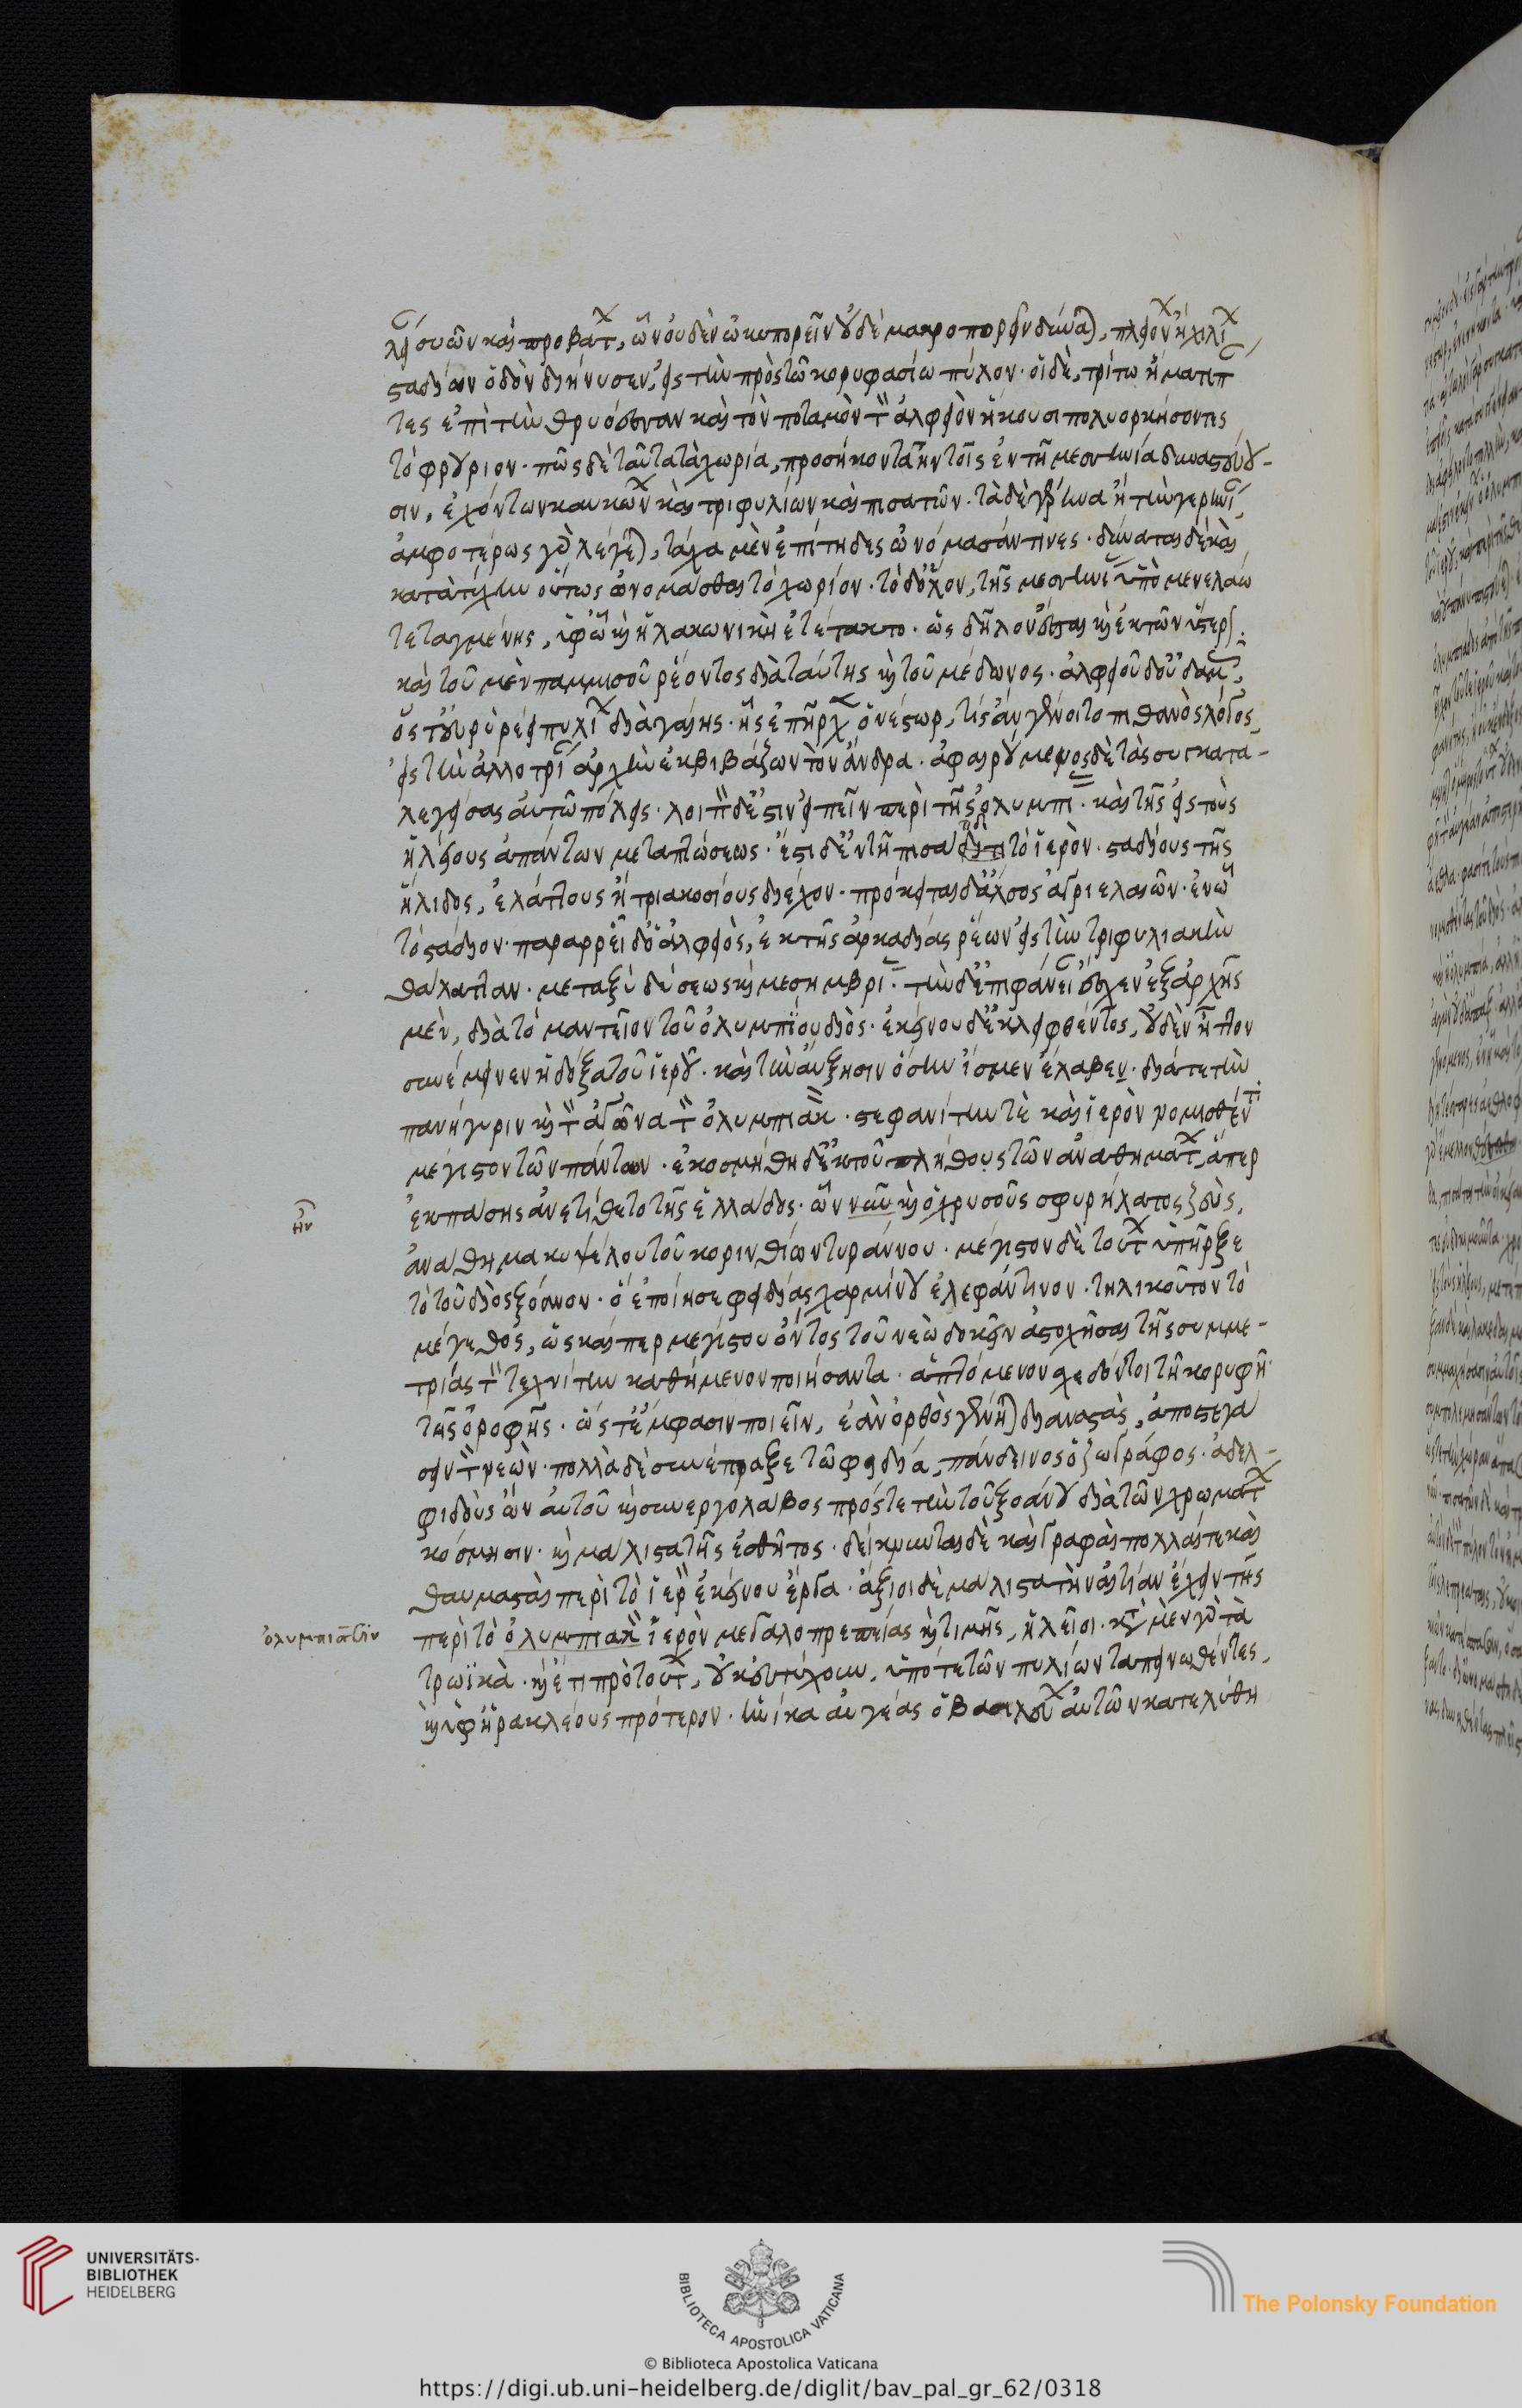 λεία συῶν καὶ προβάτων, ὧν οὐδὲν ὠκυπορεῖν οὐδὲ μακροπορεῖν δύναται, πλειόνων ἢ χιλίων
σταδίων ὁδὸν διήνυσεν, εἰς τὴν πρὸς τῶ κορυφασίω πύλον. οἱ δὲ, τρίτω ἤματι πάν
τες ἐπὶ τὴν θρυόεσσαν καὶ τὸν ποταμὸν τὸν ἀλφειὸν ἥκουσι πολυορκήσοντες
τὸ φρούριον. πῶς δὲ ταῦτα τὰ χωρία, προσήκοντα ἦν τοῖς ἐν τῆ μεσσηνία δυναστεύου-
σιν, ἐχόντων καυκώνων καὶ τριφυλίων καὶ πισατῶν. τὰ δὲ γέρηνα ἢ τὴν γερηνίαν,
ἀμφοτέρως γὰρ λέγεται, τάχα μὲν ἐπίτηδες ὠνόμασάν τινες. δύναται δὲ καὶ
κατὰ τύχην οὕτως ὠνομᾶσθαι τὸ χωρίον. τὸ δ' ὅλον, τῆς μεσσηνίας ὑπὸ μενελάω
τεταγμένης, ὑφ' ᾧ καὶ ἡ λακωνικὴ ἐτέτακτο. ὡς δῆλον ἔσται καὶ ἐκ τῶν ὕστερον.
καὶ τοῦ μὲν παμμισοῦ ῥέοντος διὰ ταύτης καὶ τοῦ μέδωνος. ἀλφειοῦ δ' οὐδαμῶς,
ὅς τ' εὐρὺ ῥέει πυλίων διὰ γαίης. ἧς ἐπῆρχεν ὁ νέστωρ, τίς ἂν γένοιτο πιθανὸς λόγος,
εἰς τὴν ἀλλοτρίαν ἀρχὴν ἐκβιβάζων τὸν ἄνδρα. ἀφαιρούμενος δὲ τὰς συγκατα-
λεγείσας αὐτῶ πόλεις. λοιπὸν δ' ἔστιν εἰπεῖν περὶ τῆς ὀλυμπίας. καὶ τῆς εἰς τοὺς
ἠλείους ἁπάντων μεταπτώσεως. ἔστι δ' ἐν τῆ πισάτιδι τὸ ἱερὸν. σταδίους τῆς
ἤλιδος, ἐλάττους ἢ τριακοσίους διέχον. πρόκειται δ' ἄλσος ἀγριελαιῶν. ἐν ᾧ
τὸ στάδιον. παραρρεῖ δ' ὁ ἀλφειὸς, ἐκ τῆς ἀρκαδίας ῥέων εἰς τὴν τριφυλιακὴν
θάλατταν. μεταξὺ δύσεως καὶ μεσημβρίας. τὴν δ' ἐπιφάνειαν ἔσχεν ἐξ ἀρχῆς
μὲν, διὰ τὸ μαντεῖον τοῦ ὀλυμπίου διὸς. ἐκείνου δ' ἐκλειφθέντος, οὐδὲν ἧττον
συνέμεινεν ἡ δόξα τοῦ ἱεροῦ. καὶ τὴν αὔξησιν ὅσην ἴσμεν ἔλαβεν. διά τε τὴν
πανήγυριν καὶ τὸν ἀγῶνα τὸν ὀλυμπιακὸν. στεφανίτην τὲ καὶ ἱερὸν νομισθέντα
μέγιστον τῶν πάντων. ἐκοσμήθη δ' ἐκ τοῦ πλήθους τῶν ἀναθημάτων, ἅπερ
ἐκ πάσης ἀνετίθετο τῆς ἑλλάδος. ὧν ναῦν καὶ ὁ χρυσοῦς σφυρήλατος ζεὺς,
ην
ἀνάθημα κυψέλου τοῦ κορινθίων τυράννου. μέγιστον δὲ τούτων ὑπῆρξε
τὸ τοῦ διὸς ξόανον. ὃ ἐποίησε φειδίας χαρμίνου ἐλεφάντινον. τηλικοῦτον τὸ
μέγεθος, ὡς καίπερ μεγίστου ὄντος τοῦ νεὼ δοκεῖν ἀστοχῆσαι τῆς συμμε-
τρίας τὸν τεχνίτην καθήμενον ποιήσαντα. ἁπτόμενον σχεδόν τοι τῆ κορυφῆ
τῆς ὀροφῆς. ὥστ' ἔμφασιν ποιεῖν, ἐὰν ὀρθὸς γένηται διαναστὰς, ἀποστεγά
σειν τὸν νεών. πολλὰ δὲ συνέπραξε τῶ φειδία, πάνδεινος ὁ ζωγράφος. ἀδελ-
φιδοὺς ὢν αὐτοῦ καὶ συνεργολάβος πρός τε τὴν τοῦ ξοάνου διὰ τῶν χρωμάτων
κόσμησιν. καὶ μάλιστα τῆς ἐσθῆτος. δείκνυνται δὲ καὶ γραφαὶ πολλαί τε καὶ
θαυμασταὶ περὶ τὸ ἱερὸν ἐκείνου ἔργα. ἄξιοι δὲ μάλιστα τὴν αἰτίαν ἔχειν τῆς
περὶ τὸ ὀλυμπιακὸν ἱερὸν μεγαλοπρεπείας καὶ τιμῆς, ἠλεῖοι. κατὰ μὲν γὰρ τὰ
ὀλυμπίασιν
τρωϊκὰ. καὶ ἔτι πρὸ τούτων, οὐκ εὐτύχουν, ὑπό τε τῶν πυλίων ταπεινωθέντες,
καὶ ὑφ' ἡρακλέους πρότερον. ἡνίκα αὐγέας ὁ βασιλεύων αὐτῶν κατελύθη
UNIVERSITÄTS-
BIBLIOTHEK
HEIDELBERG
BIBLIOTECA APOSTOLICA VATICANA
The Polonsky Foundation
© Biblioteca Apostolica Vaticana
https://digi.ub.uni-heidelberg.de/diglit/bav_pal_gr_62/0318